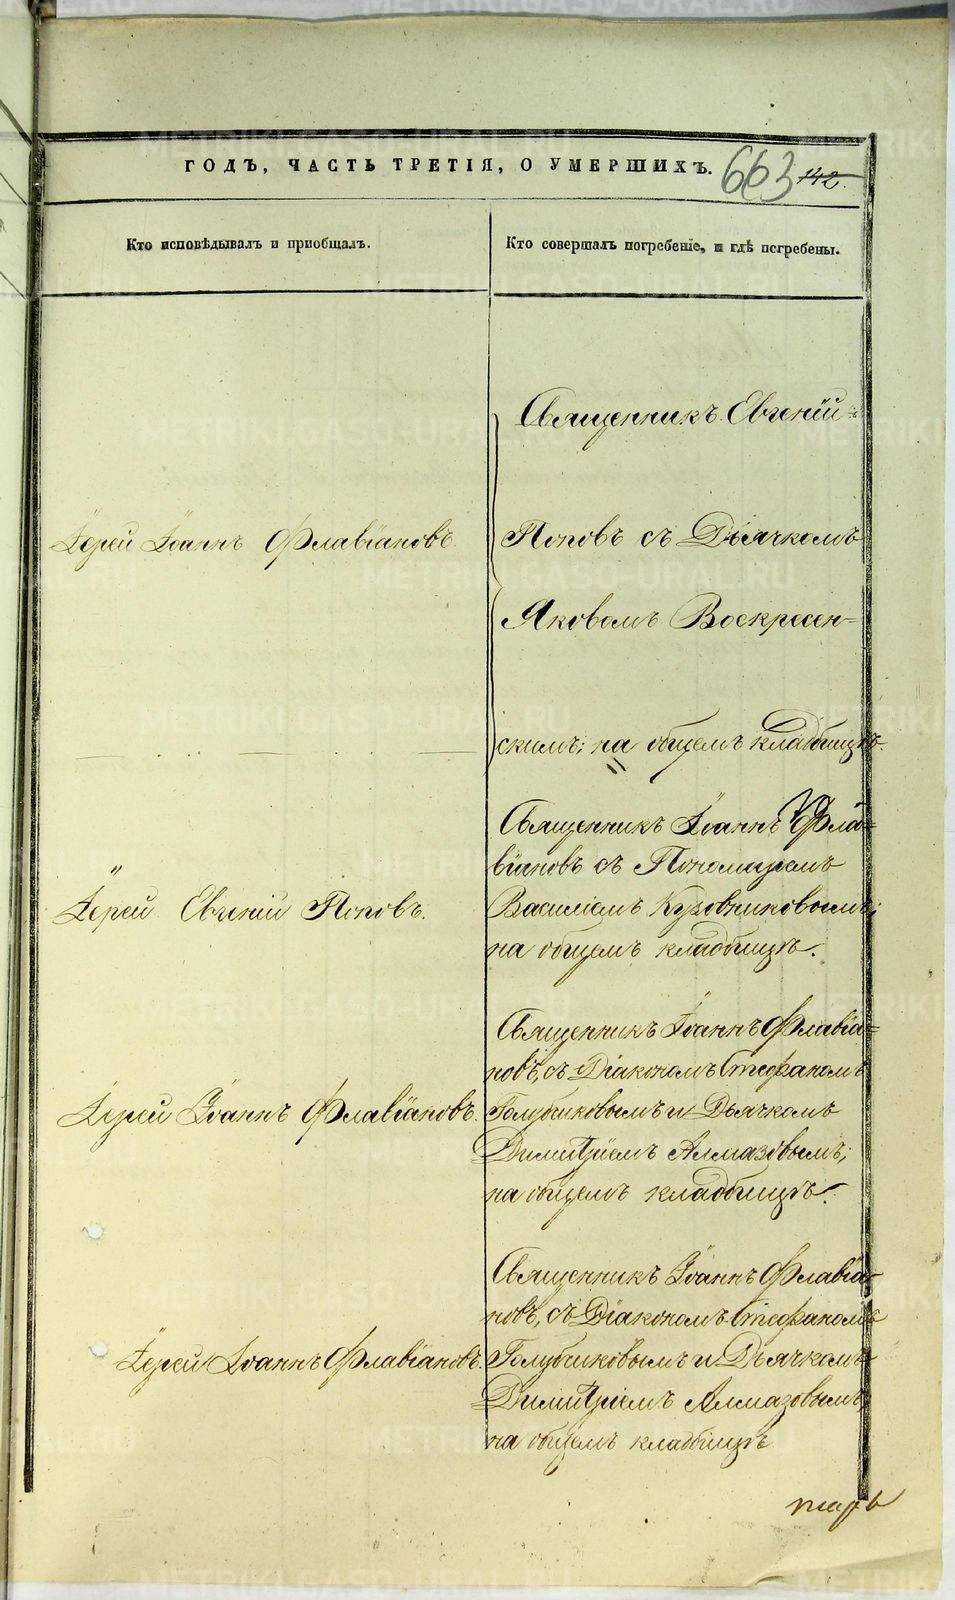 ГОДЪ, ЧАСТЬ ТРЕТІЯ, О УМЕРШИХЪ.
663 142.
Кто исповѣдывалъ и пріобщалъ.
Кто совершалъ погребеніе, и гдѣ погребены.
Священникъ Евгеній
Іерей Іоаннъ Флавіановъ.
Поповъ съ Дьячкомъ
Яковомъ Воскресен=
скимъ; на общемъ кладбищѣ.
Священникъ Іоаннъ Фла=
віановъ съ Пономаремъ
Іерей Евгеній Поповъ.
Василіемъ Кузовниковымъ;
на общемъ кладбищѣ.
Священникъ Іоаннъ Флавіа=
новъ, съ Діакономъ Стефаномъ
Іерей Іоаннъ Флавіановъ.
Голубчиковымъ и Дьячкомъ
Димитріемъ Алмазовымъ;
на общемъ кладбищѣ.
Священникъ Іоаннъ Флавіа=
новъ, съ Діакономъ Стефаномъ
Іерей Іоаннъ Флавіановъ.
Голубчиковымъ и Дьячкомъ
Димитріемъ Алмазовымъ,
на общемъ кладбищѣ
METRIKI.GASO-URAL.RU